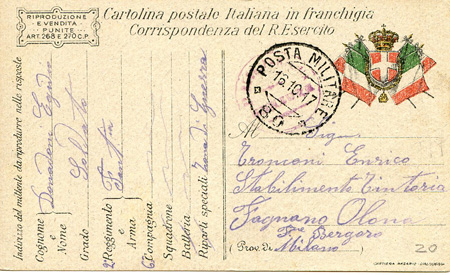 RIPRODUZIONE
E VENDITA
PUNITE
ART. 268 E 270 C.P.
Cartolina postale Italiana in franchigia
Corrispondenza del R. Esercito
POSTA MILITARE
16.10.17
80
Indirizzo del mittente da riprodurre nelle risposte
Cognome e Nome
Grado Soldato
Reggimento e Arma
Compagnia
Squadrone
Batteria
Riparti speciali Zona di Guerra
Al Sign.
Tronconi Enrico
Stabilimento Tintoria
Fagnano Olona
Bergoro
(Prov. di Milano)
20